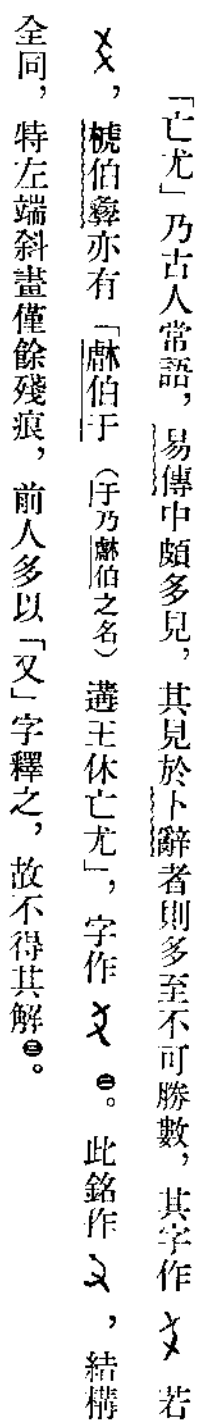 「亡尤」乃古人常語，易傳中頗多見，其見於卜辭者則多至不可勝數，其字作 若
，㯉伯彝亦有「㯉伯于（于乃㯉伯之名）遘王休亡尤」，字作 ㊁。此銘作 ，結構
全同，特左端斜畫僅餘殘痕，前人多以「又」字釋之，故不得其解㊂。